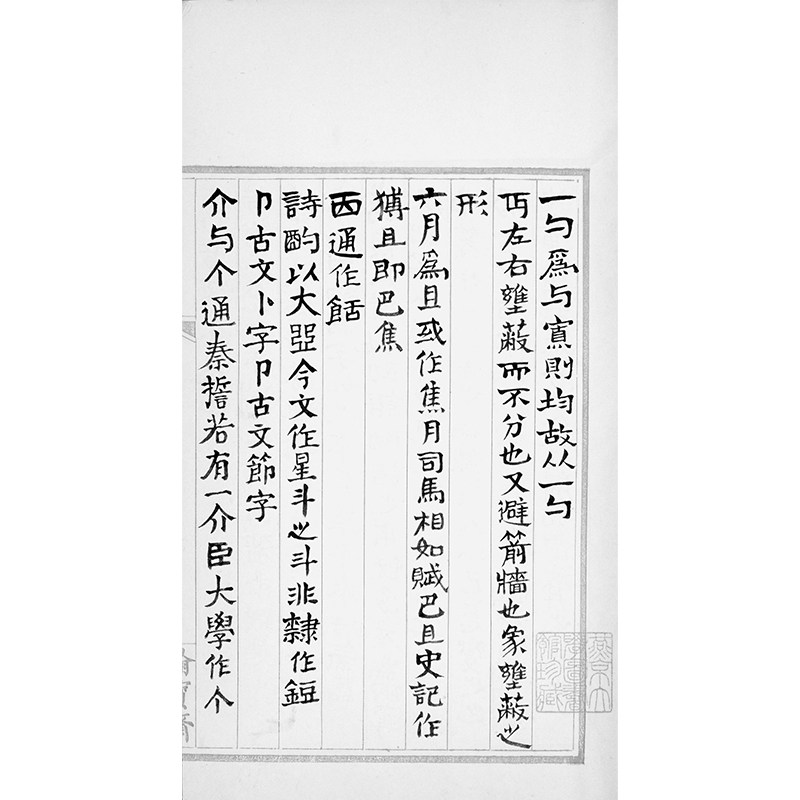 一勺爲与寡則均故从一勺
丏左右壅蔽而不分也又避箭牆也象壅蔽㞢
形
六月爲且或作焦月司馬相如賦巴且史記作
猼且即巴焦
㐁通作餂
詩酌以大㔽今文作星斗㞢斗非隸作鋀
卩古文卜字卩古文節字
介与个通秦誓若有一介臣大學作个